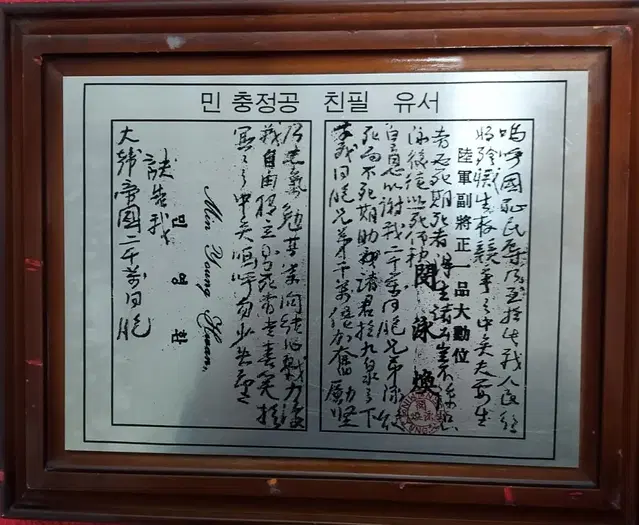 민 충정공 친필 유서
嗚呼國恥民辱乃至於此我人民行
將殄滅生存競爭之中矣夫要生
陸軍副將正一品大勳位
者必死期死者得生諸公豈不諒只
閔泳煥
泳煥徒以一死仰報
皇恩以謝我二千萬同胞兄弟泳煥
死而不死期助諸君於九泉之下
幸我同胞兄弟千萬倍加奮勵堅
乃志氣勉其學問結心戮力復
我自由獨立則死者當喜笑於
冥冥之中矣嗚呼勿少失望
Min Young Hwan,
민영환
訣告我
大韓帝國二千萬同胞